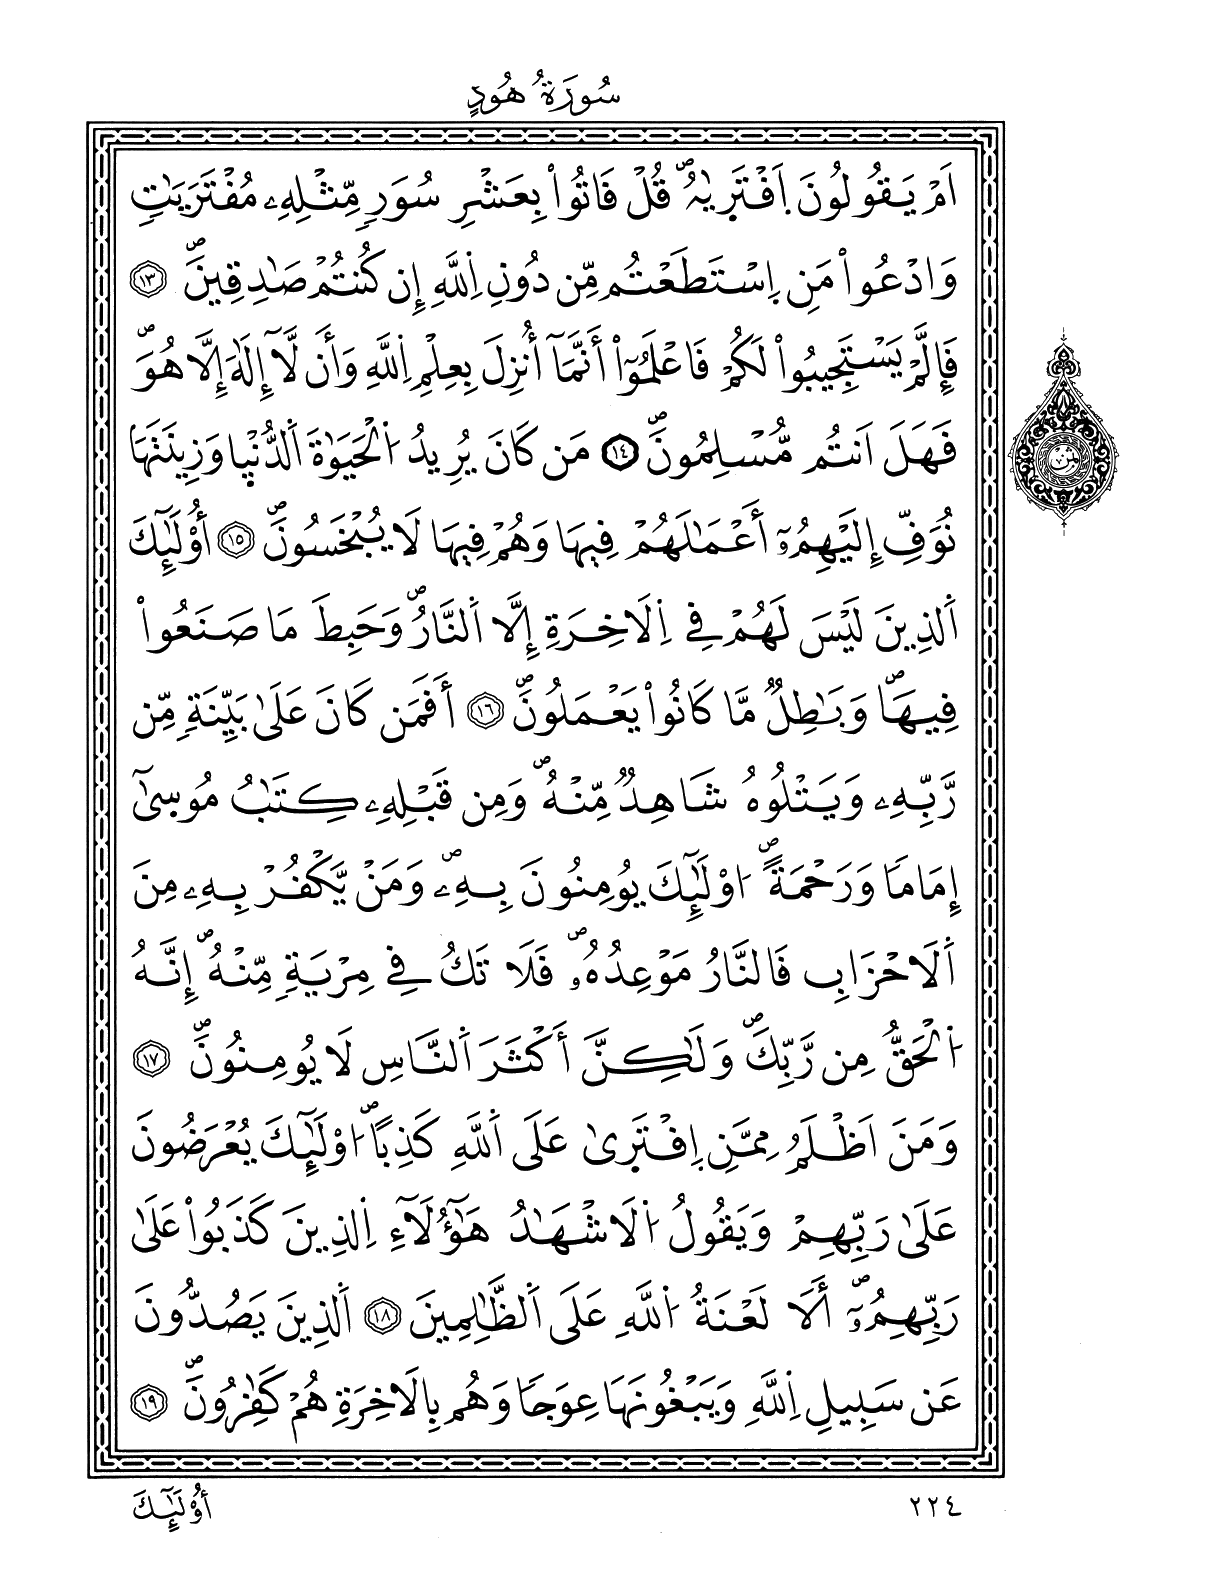 سُورَةُ هُودٍ
اَمْ يَقُولُونَ اَ۪فْتَر۪يٰهُۖ قُلْ فَاتُواْ بِعَشْرِ سُوَرٖ مِّثْلِهِۦ مُفْتَرَيَٰتٖ
وَادْعُواْ مَنِ اِ۪سْتَطَعْتُم مِّن دُونِ اِ۬للَّهِ إِن كُنتُمْ صَٰدِقِينَۖ ١٣
فَإِلَّمْ يَسْتَجِيبُواْ لَكُمْ فَاعْلَمُوٓاْ أَنَّمَآ أُنزِلَ بِعِلْمِ اِ۬للَّهِ وَأَن لَّآ إِلَٰهَ إِلَّا هُوَۖ
فَهَلَ اَنتُم مُّسْلِمُونَۖ ١٤ مَن كَانَ يُرِيدُ اُ۬لْحَيَوٰةَ اَ۬لدُّنْي۪ا وَزِينَتَهَا
نُوَفِّ إِلَيْهِمُۥٓ أَعْمَٰلَهُمْ فِيهَا وَهُمْ فِيهَا لَا يُبْخَسُونَۖ ١٥ أُوْلَٰٓئِكَ
اَ۬لذِينَ لَيْسَ لَهُمْ فِے اِ۬لَاخِرَةِ إِلَّا اَ۬لنَّارُۖ وَحَبِطَ مَا صَنَعُواْ
فِيهَاۖ وَبَٰطِلٞ مَّا كَانُواْ يَعْمَلُونَۖ ١٦ أَفَمَن كَانَ عَلَىٰ بَيِّنَةٖ مِّن
رَّبِّهِۦ وَيَتْلُوهُ شَاهِدٞ مِّنْهُۖ وَمِن قَبْلِهِۦ كِتَٰبُ مُوس۪ىٰٓ
إِمَاماٗ وَرَحْمَةًۖ اُ۟وْلَٰٓئِكَ يُومِنُونَ بِهِۦۖ وَمَنْ يَّكْفُرْ بِهِۦ مِنَ
اَ۬لَاحْزَابِ فَالنَّارُ مَوْعِدُهُۥۖ فَلَا تَكُ فِے مِرْيَةٖ مِّنْهُۖ إِنَّهُ
اُ۬لْحَقُّ مِن رَّبِّكَۖ وَلَٰكِنَّ أَكْثَرَ اَ۬لنَّاسِ لَا يُومِنُونَۖ ١٧
وَمَنَ اَظْلَمُ مِمَّنِ اِ۪فْتَر۪ىٰ عَلَى اَ۬للَّهِ كَذِباًۖ اُ۟وْلَٰٓئِكَ يُعْرَضُونَ
عَلَىٰ رَبِّهِمْ وَيَقُولُ اُ۬لَاشْهَٰدُ هَٰٓؤُلَآءِ اِ۬لذِينَ كَذَبُواْ عَلَىٰ
رَبِّهِمُۥٓۖ أَلَا لَعْنَةُ اُ۬للَّهِ عَلَى اَ۬لظَّٰلِمِينَ ١٨ اَ۬لذِينَ يَصُدُّونَ
عَن سَبِيلِ اِ۬للَّهِ وَيَبْغُونَهَا عِوَجاٗ وَهُم بِالَاخِرَةِ هُمْ كَٰفِرُونَۖ ١٩
٢٢٤
أُوْلَٰٓئِكَ